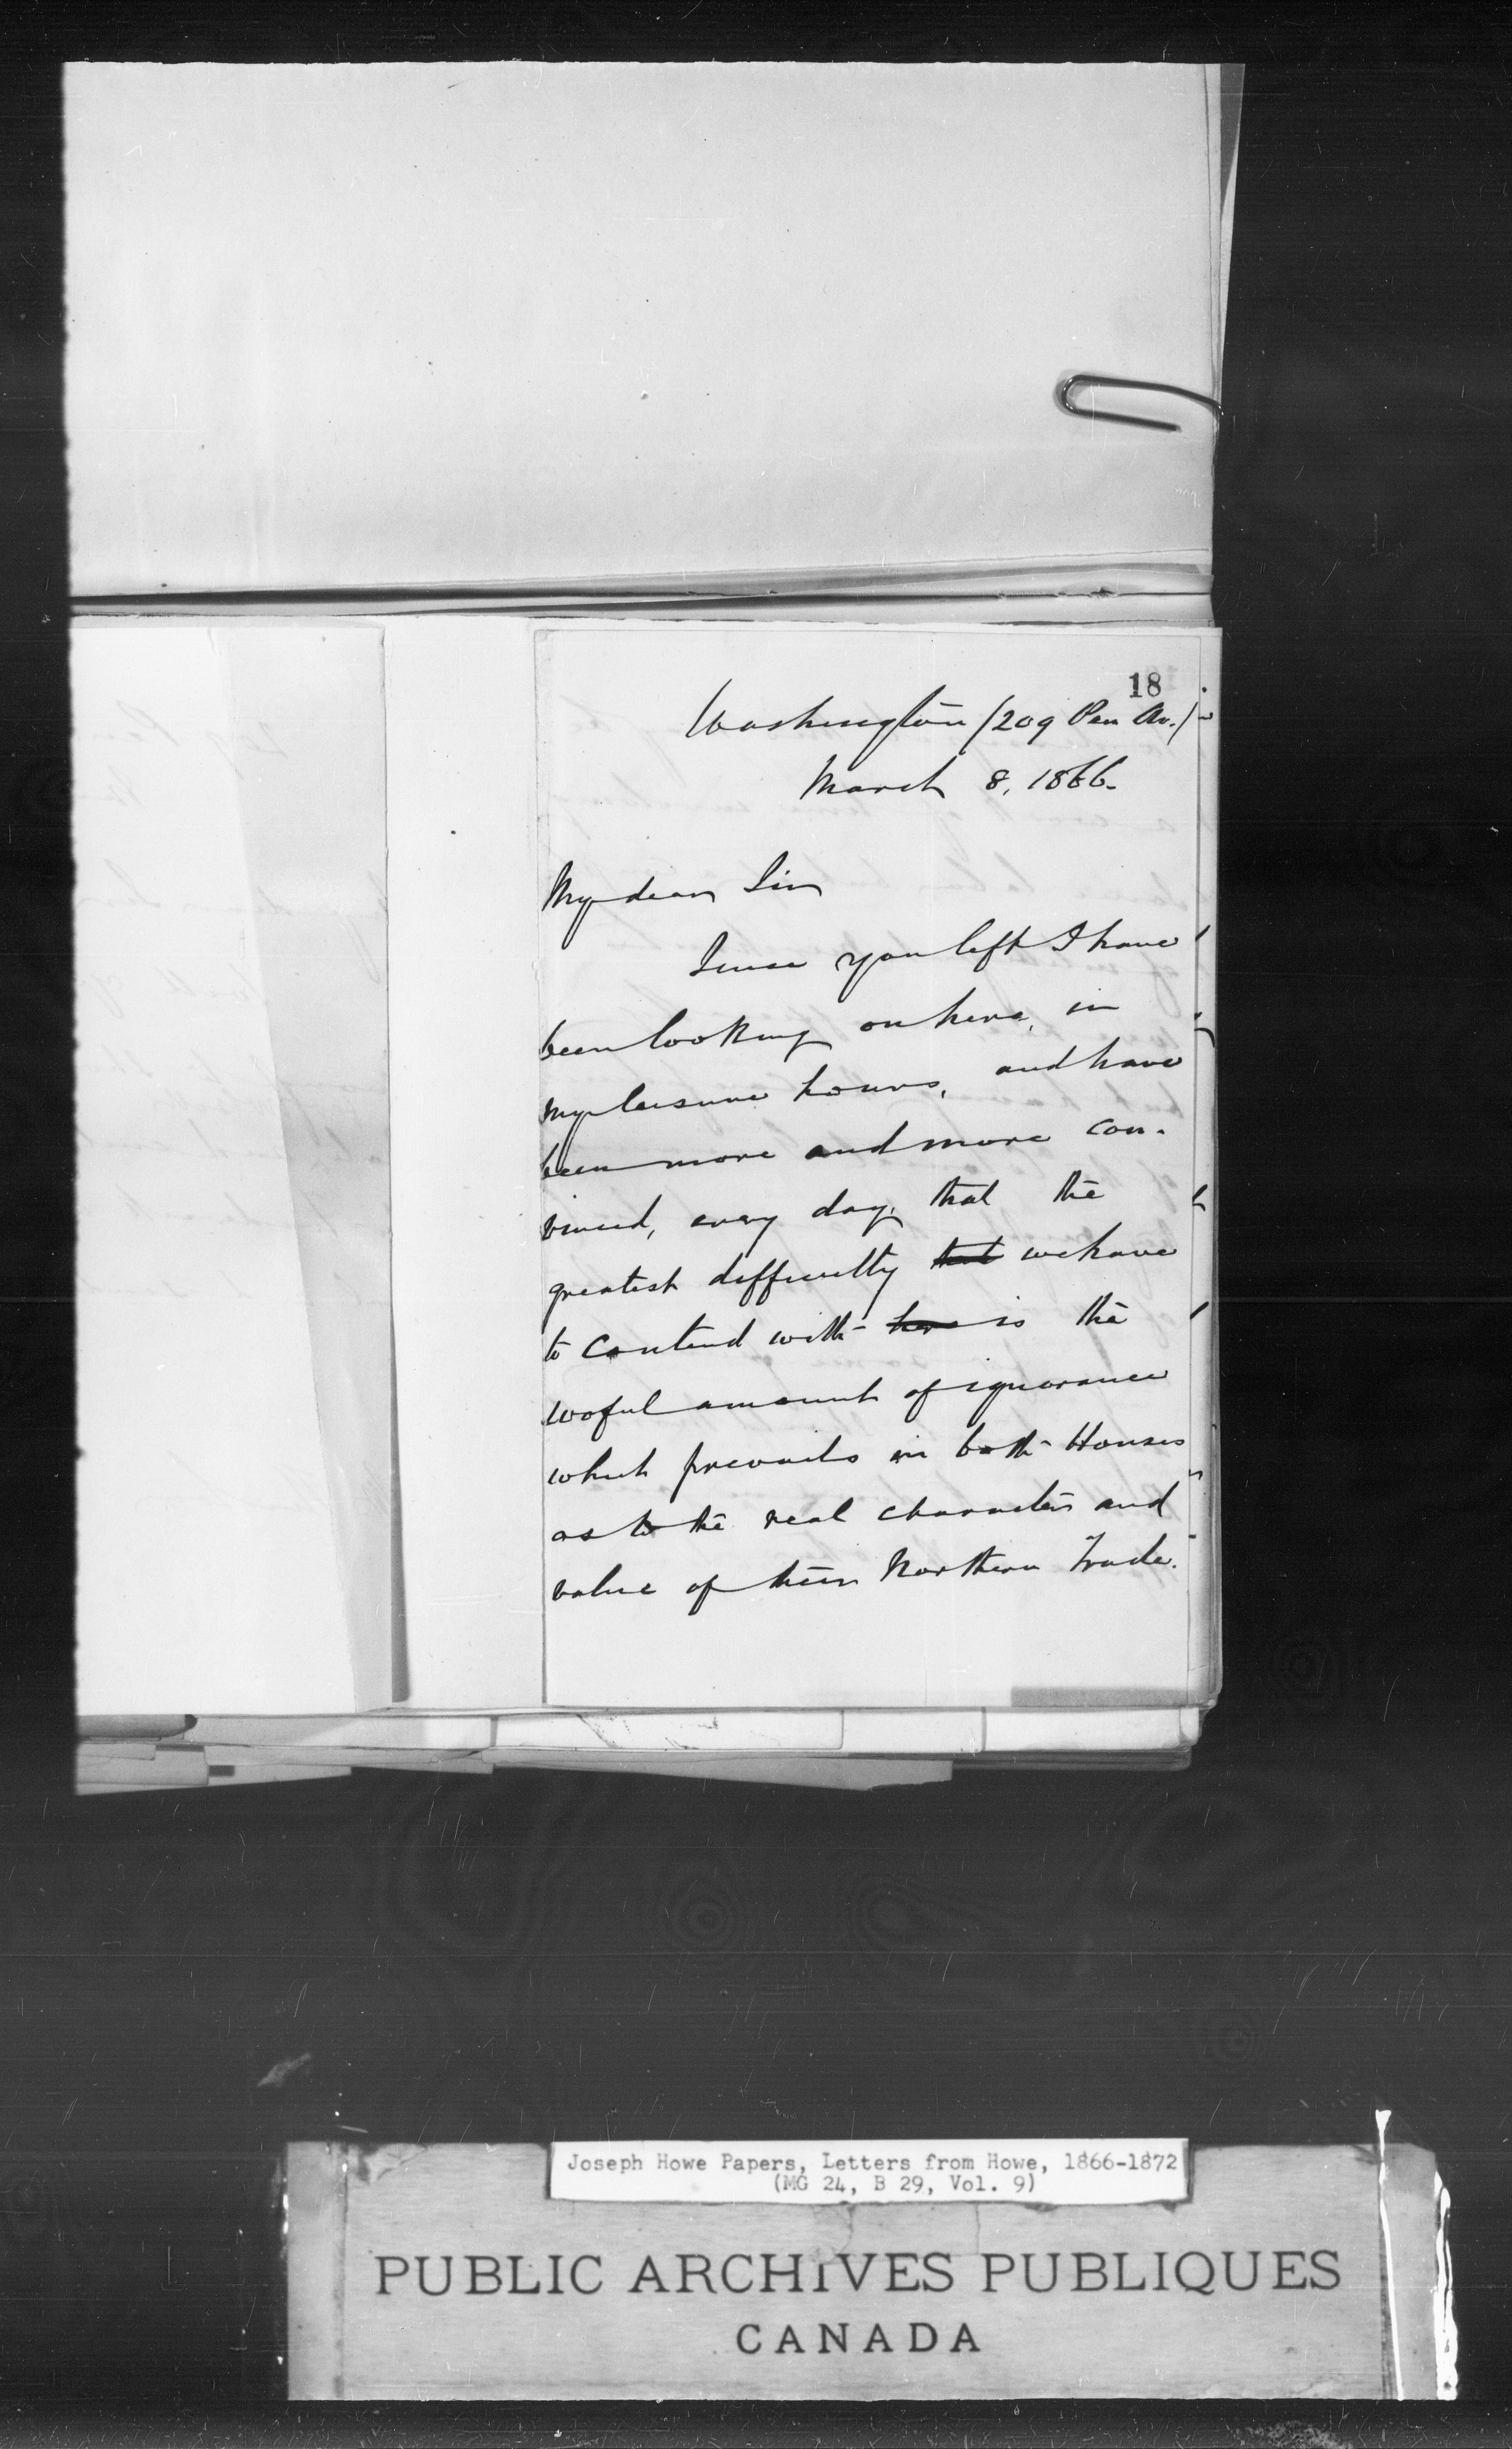 18
Washington (209 Pen Av.)
March 8, 1866.
My dear Sir
Since you left I have
been looking on here, in
my leisure hours, and have
been more and more con-
vinced, every day, that the
greatest difficulty that we have
to contend with here is the
woful amount of ignorance
which prevails in both Houses
as to the real character and
value of their Northern Trade.
Joseph Howe Papers, Letters from Howe, 1866-1872
(MG 24, B 29, Vol. 9)
PUBLIC ARCHIVES PUBLIQUES
CANADA